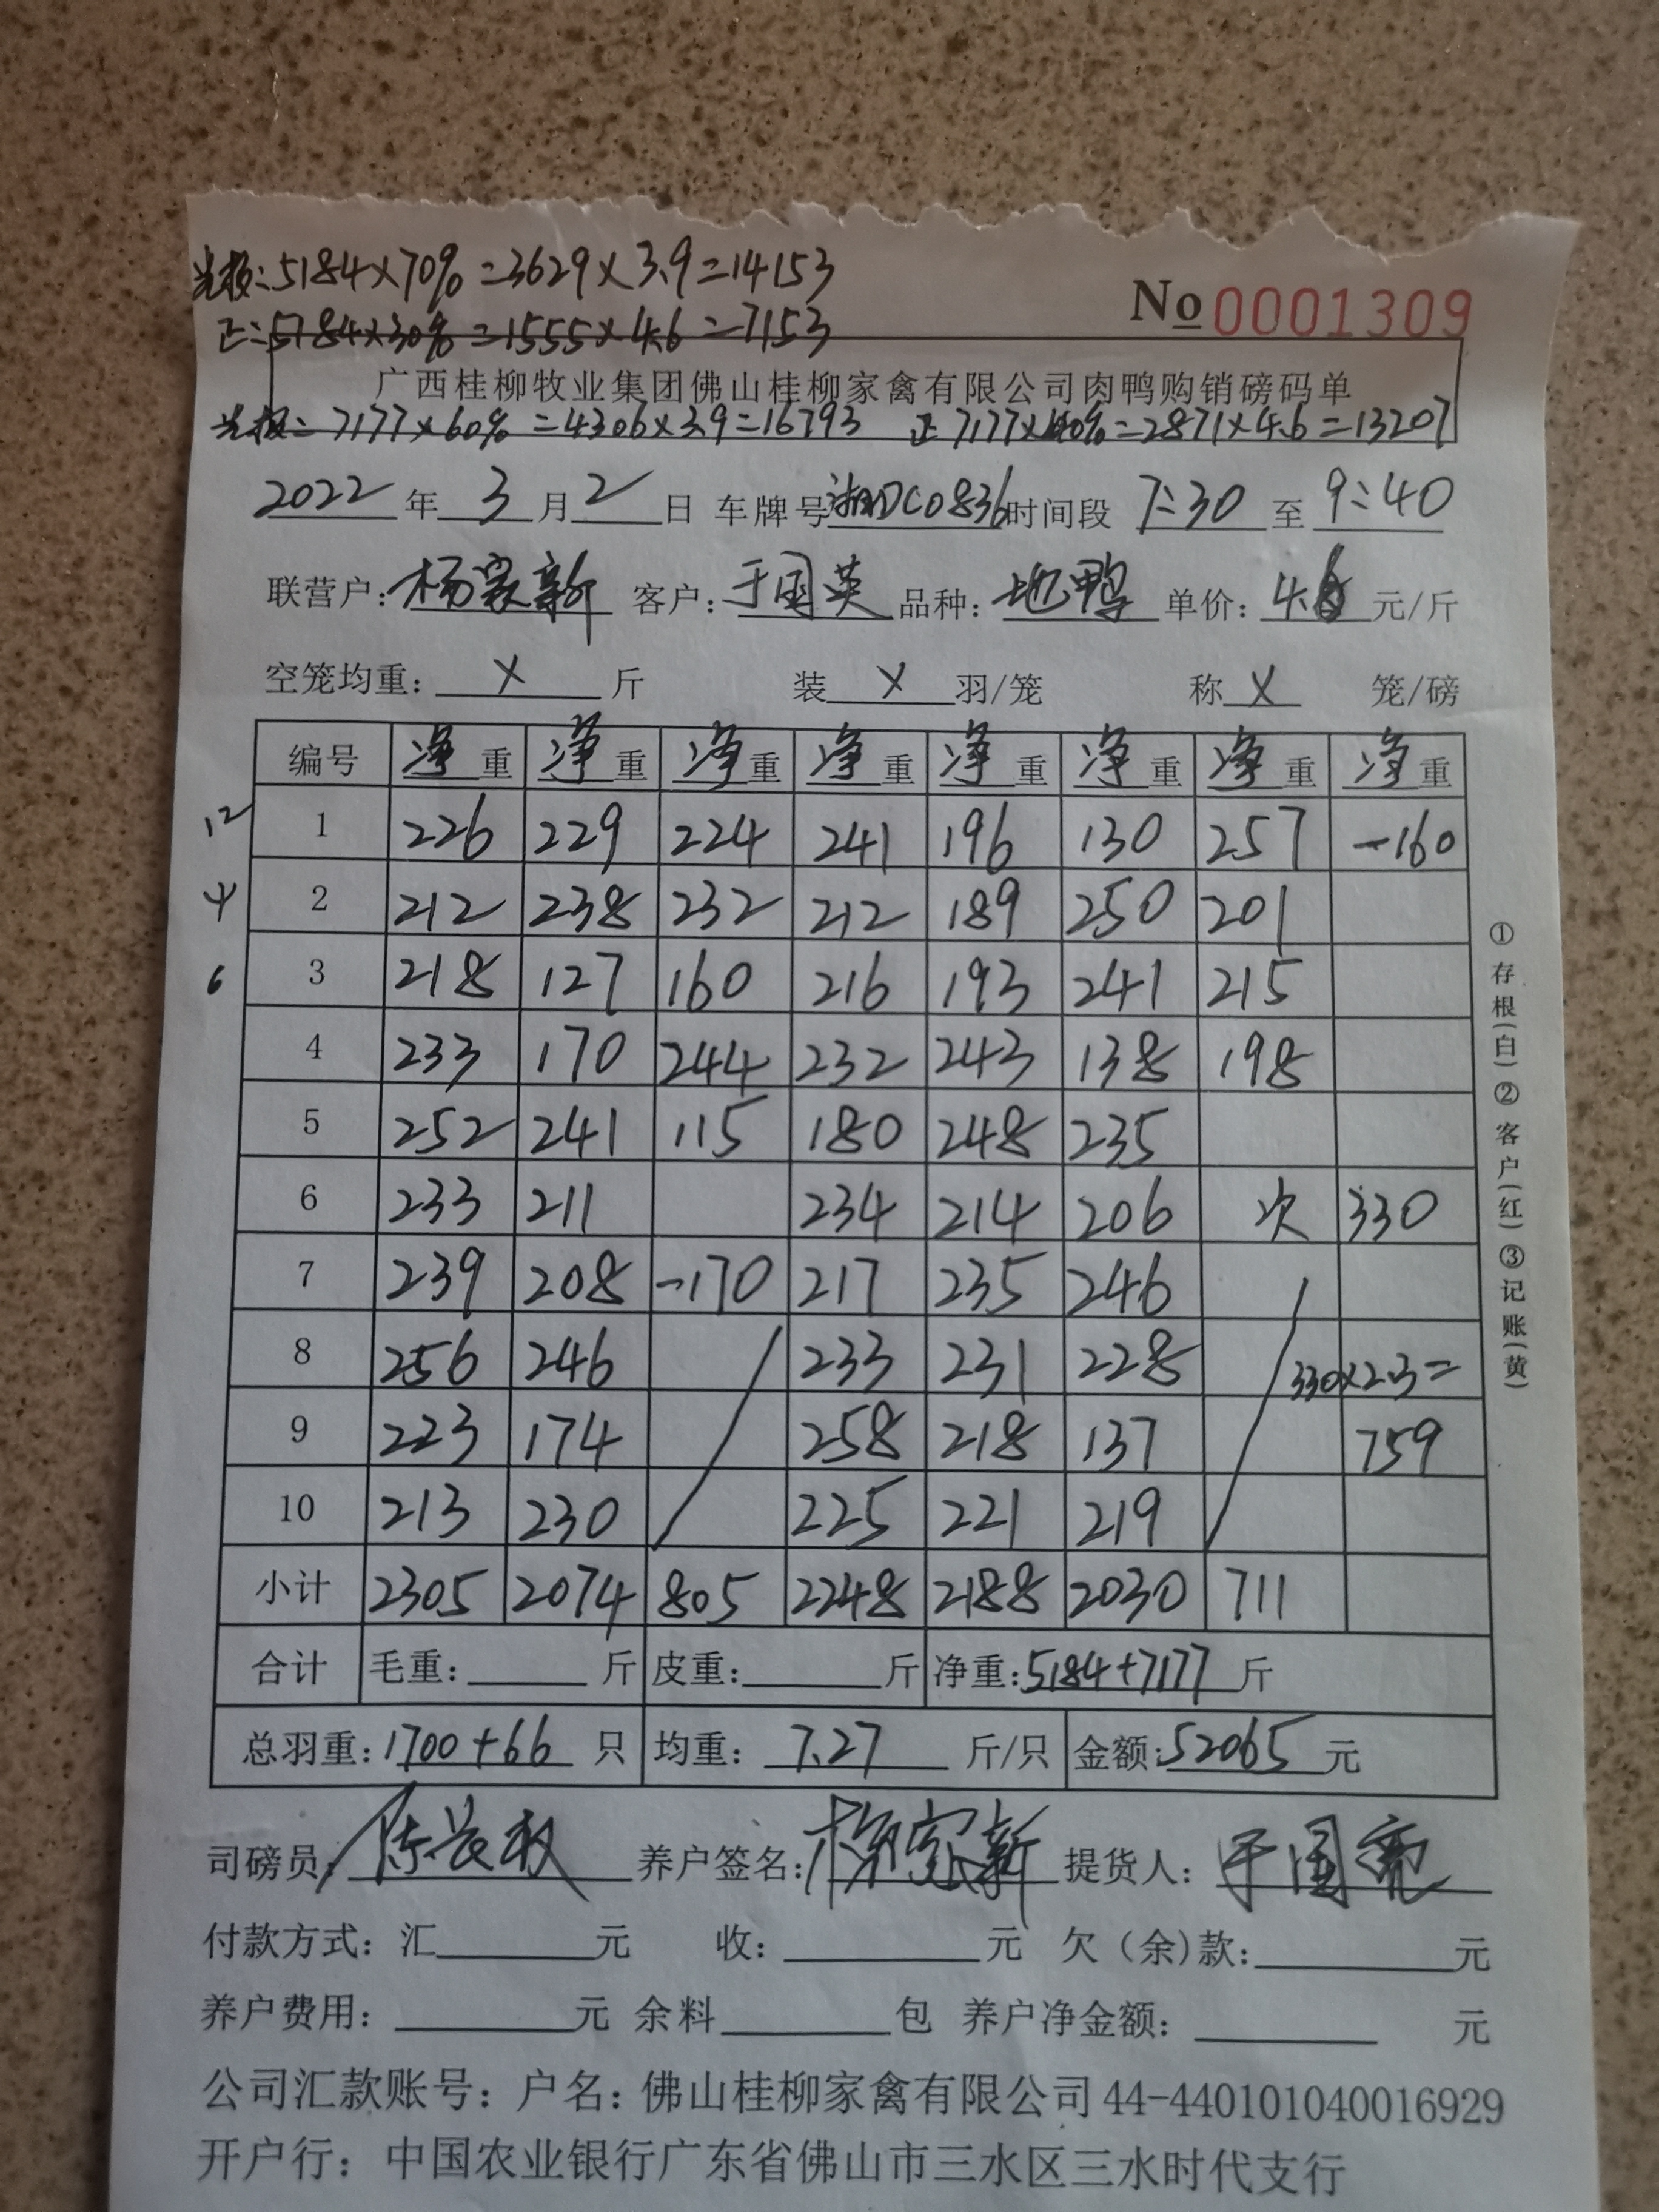 光板：5184×70%=3629×3.9=14153
No 0001309
正：5184×30%=1555×4.6=7153
广西桂柳牧业集团佛山桂柳家禽有限公司肉鸭购销磅码单
光板：7177×60%=4306×3.9=16793 正 7177×40%=2871×4.6=13207
2022年3月2日 车牌号湘DC0836时间段 7:30 至 9:40
联营户：杨家新 客户：于国英 品种：地鸭 单价：4.6 元/斤
空笼均重：× 斤 装 × 羽/笼 称 × 笼/磅
编号 净重 净重 净重 净重 净重 净重 净重 净重
12 1 226 229 224 241 196 130 257 -160
4 2 212 238 232 212 189 250 201
6 3 218 127 160 216 193 241 215
4 233 170 244 232 243 138 198
5 252 241 115 180 248 235
6 233 211 234 214 206 次 330
7 239 208 -170 217 235 246
8 256 246 233 231 228 330×2.3=
9 223 174 258 218 137 759
10 213 230 225 221 219
小计 2305 2074 805 2248 2188 2030 711
合计 毛重： 斤 皮重： 斤 净重：5184+7177 斤
总羽重：1700+66 只 均重：7.27 斤/只 金额：52065 元
司磅员： 养户签名：杨家新 提货人：于国亮
付款方式：汇 元 收： 元 欠（余)款： 元
养户费用： 元 余料 包 养户净金额： 元
公司汇款账号：户名：佛山桂柳家禽有限公司 44-440101040016929
开户行：中国农业银行广东省佛山市三水区三水时代支行
①存根(白)②客户(红)③记账(黄)